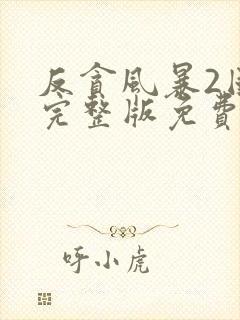 反貪風暴2
完整版免費
呼小虎